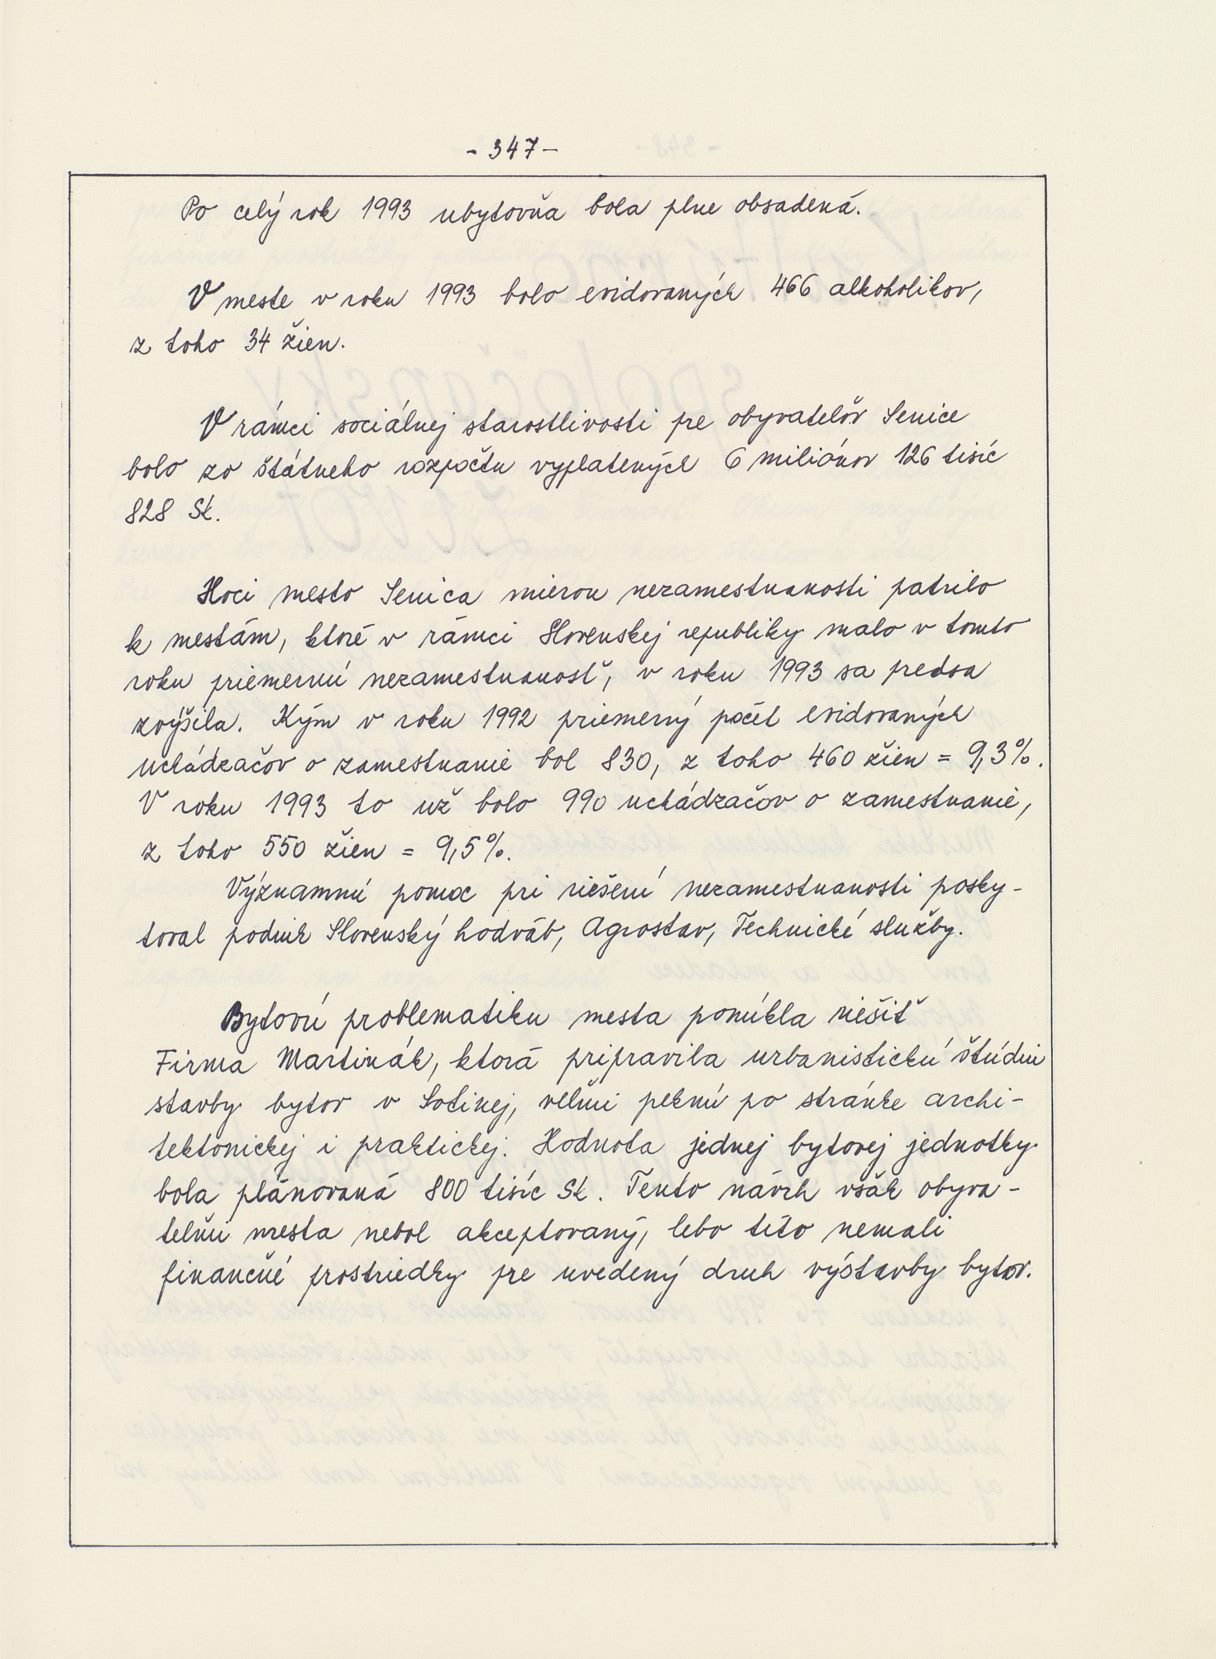 - 347 -
Po celý rok 1993 ubytovňa bola plne obsadená.
V meste v roku 1993 bolo evidovaných 466 alkoholikov,
z toho 34 žien.
V rámci sociálnej starostlivosti pre obyvateľov Senice
bolo zo štátneho rozpočtu vyplatených 6 miliónov 126 tisíc
828 Sk.
Hoci mesto Senica mierou nezamestnanosti patrilo
k mestám, ktoré v rámci Slovenskej republiky malo v tomto
roku priemernú nezamestnanosť, v roku 1993 sa predsa
zvýšila. Kým v roku 1992 priemerný počet evidovaných
uchádzačov o zamestnanie bol 830, z toho 460 žien = 9,3%.
V roku 1993 to už bolo 990 uchádzačov o zamestnanie,
z toho 550 žien = 9,5%.
Významnú pomoc pri riešení nezamestnanosti posky-
toval podnik Slovenský hodváb, Agrostav, Technické služby.
Bytovú problematiku mesta ponúkla riešiť
Firma Martinák, ktorá pripravila urbanistickú štúdiu
stavby bytov v Sotinej, veľmi peknú po stránke archi-
tektonickej i praktickej. Hodnota jednej bytovej jednotky
bola plánovaná 800 tisíc Sk. Tento návrh však obyva-
teľmi mesta nebol akceptovaný, lebo títo nemali
finančné prostriedky pre uvedený druh výstavby bytov.